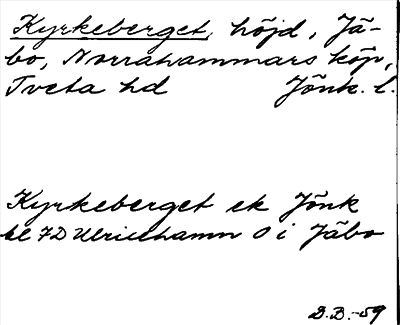 Kyrkeberget, höjd, Jä-
bo, Norrahammars köp,
Tveta hd Jönk. l.
Kyrkeberget ek Jönk
bl 7D Ulricehamn Ö i Jäbo
B.B.-59